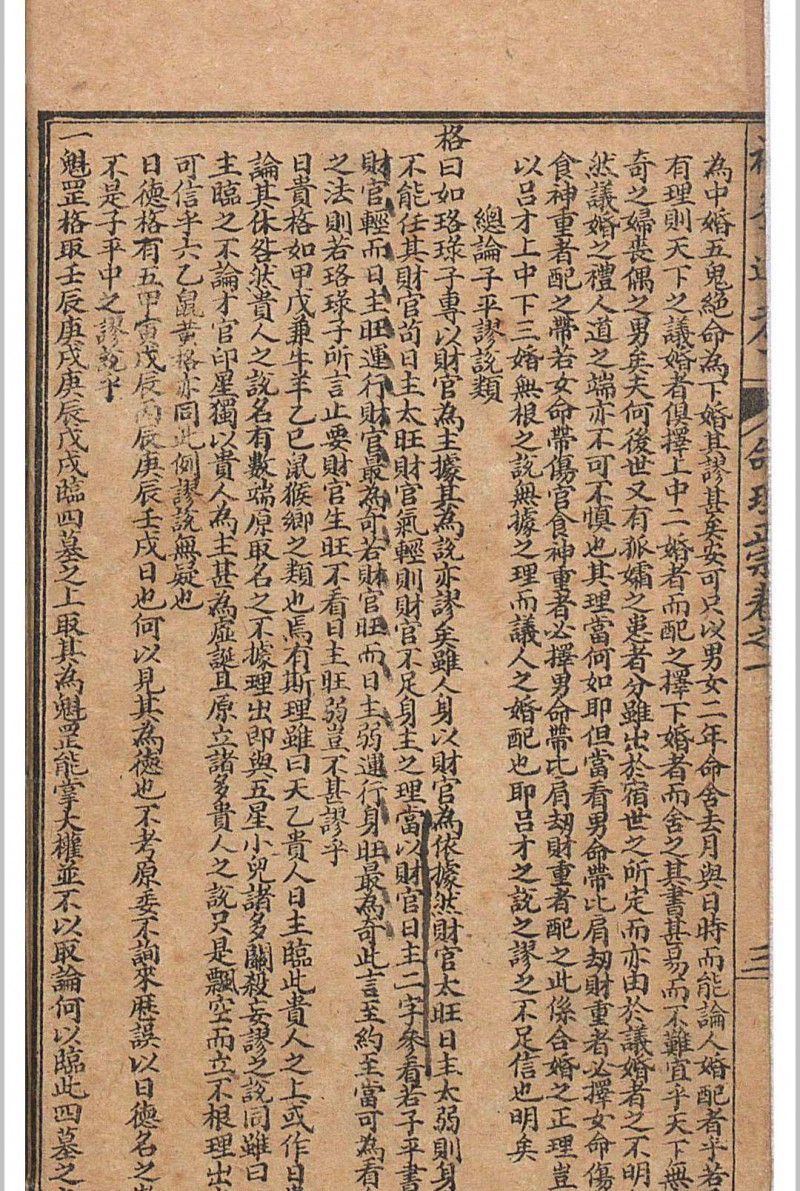 命理正宗卷之一
三
為中婚五鬼絕命為下婚其謬甚矣安可只以男女二年命舍去月與日時而能論人婚配者乎若
有理則天下之議婚者俱擇上中二婚者而配之擇下婚者而舍之其書甚易而不難宜乎天下無
奇之婦喪偶之男矣夫何後世又有孤孀之患者分雖出於宿世之所定而亦由於議婚者之不明
然議婚之禮人道之端亦不可不慎也其理當何如耶但當看男命帶比肩劫財重者必擇女命傷
食神重者配之帶若女命帶傷官食神重者必擇男命帶比肩劫財重者配之此係合婚之正理豈
以呂才上中下三婚無根之說無據之理而議人之婚配也耶呂才之說之謬之不足信也明矣
總論子平謬說類
格曰如珞琭子專以財官為主據其為說亦謬矣雖人身以財官為依據然財官太旺日主太弱則身
不能任其財官苟日主太旺財官氣輕則財官不足身主之理當以財官日主二字參看若子平書
財官輕而日主旺運行財官最為奇若財官旺而日主弱運行身旺最為奇此言至約至當可為看
之法則若珞琭子所言止要財官生旺不看日主旺弱豈不甚謬乎
日貴格如甲戊兼牛羊乙己鼠猴鄉之類也焉有斯理雖曰天乙貴人日主臨此貴人之上或作日
論其休咎然貴人之說名有數端原取名之不據理出即與五星小兒諸多關殺妄謬之說同雖曰
主臨之不論才官印星獨以貴人為主甚為虛誕且原立諸多貴人之說只是飄空而立不根理出
可信乎六乙鼠貴格亦同此例謬說無疑也
日德格有五甲寅戊辰丙辰庚辰壬戌日也何以見其為德也不考原委不詢來歷誤以日德名之
不是子平中之謬說乎
一魁罡格取壬辰庚戌庚辰戊戌臨四墓之上取其為魁罡能掌大權並不以取論何以臨此四墓之